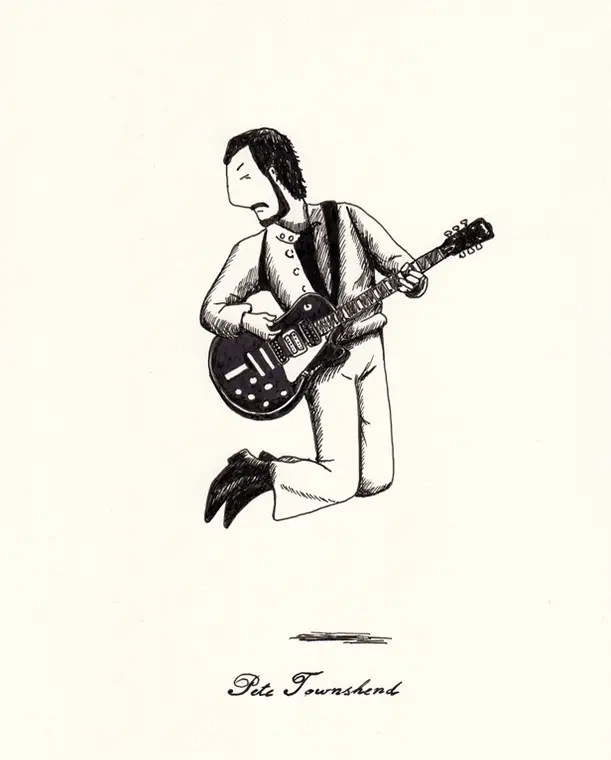 Pete Townshend